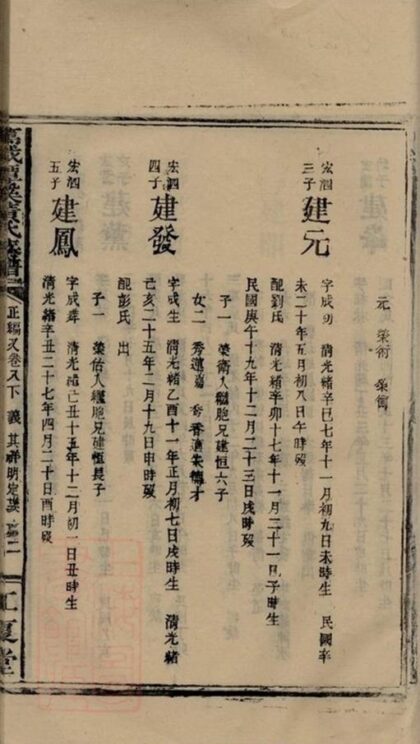 元 榮衛 榮儒
宏泗
三子
建元
字成功 清光緒辛巳七年十一月初九日未時生 民國辛
未二十年五月初八日午時歿
配劉氏 清光緒辛卯十七年十一月二十一日子時生
民國庚午十九年十二月二十三日戌時歿
子一 榮衛入繼胞兄建恒六子
女二 秀蓮 秀香適朱
宏泗
四子
建發
字成生 清光緒乙酉十一年正月初七日戌時生 清光緒
己亥二十五年二月十九日申時歿
配彭氏 出
子一 榮佑入繼胞兄建恒長子
宏泗
五子
建鳳
字成 清光緒己丑十五年十二月初一日丑時生
清光緒辛丑二十七年四月二十日酉時歿
氏族譜
正編又卷八下 義 其祥明定謨
江夏堂